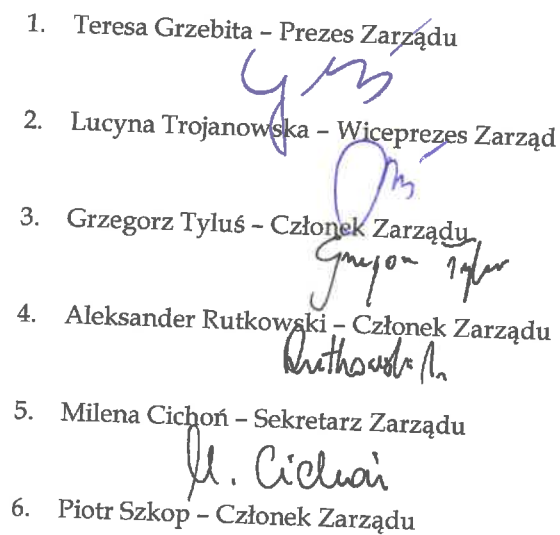 1. Teresa Grzebita – Prezes Zarządu
2. Lucyna Trojanowska – Wiceprezes Zarząd
3. Grzegorz Tyluś – Członek Zarządu
Grzegorz Tyluś
4. Aleksander Rutkowski – Członek Zarządu
Rutkowski A.
5. Milena Cichoń – Sekretarz Zarządu
M. Cichoń
6. Piotr Szkop – Członek Zarządu